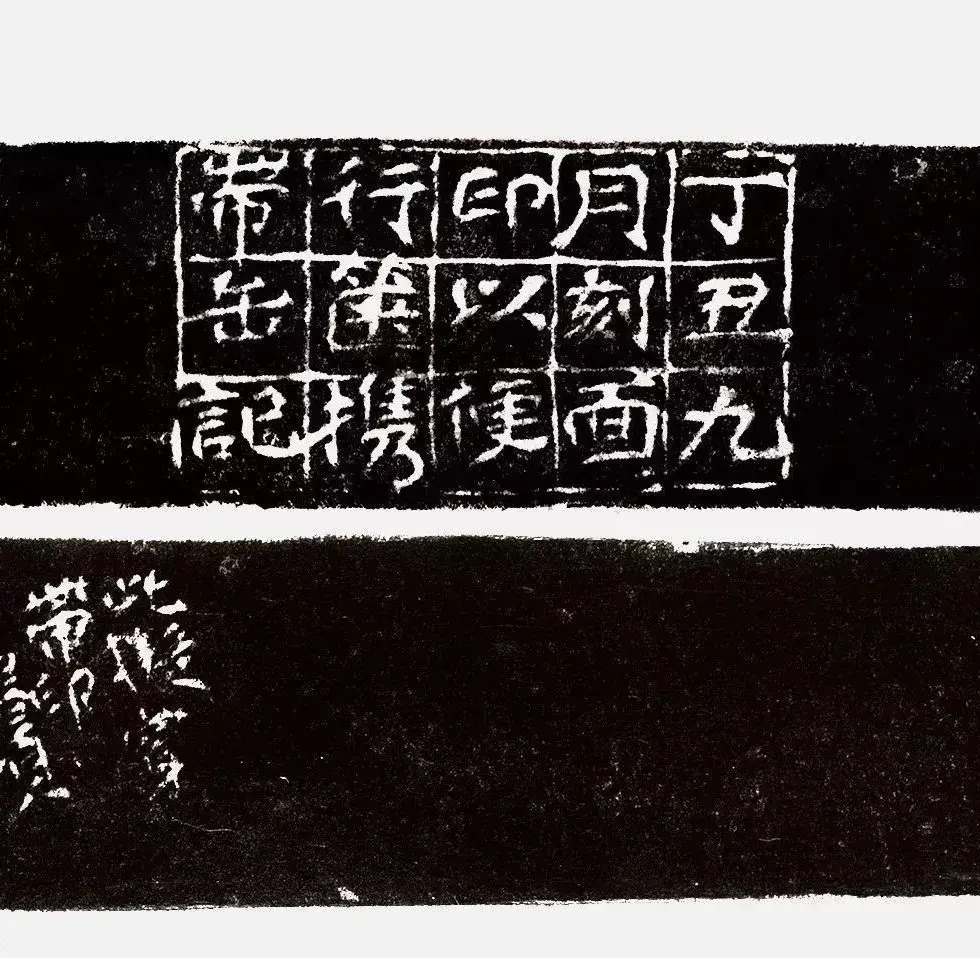 丁丑九
月刻面
印以便
行篋携
帶缶記
此
帶印